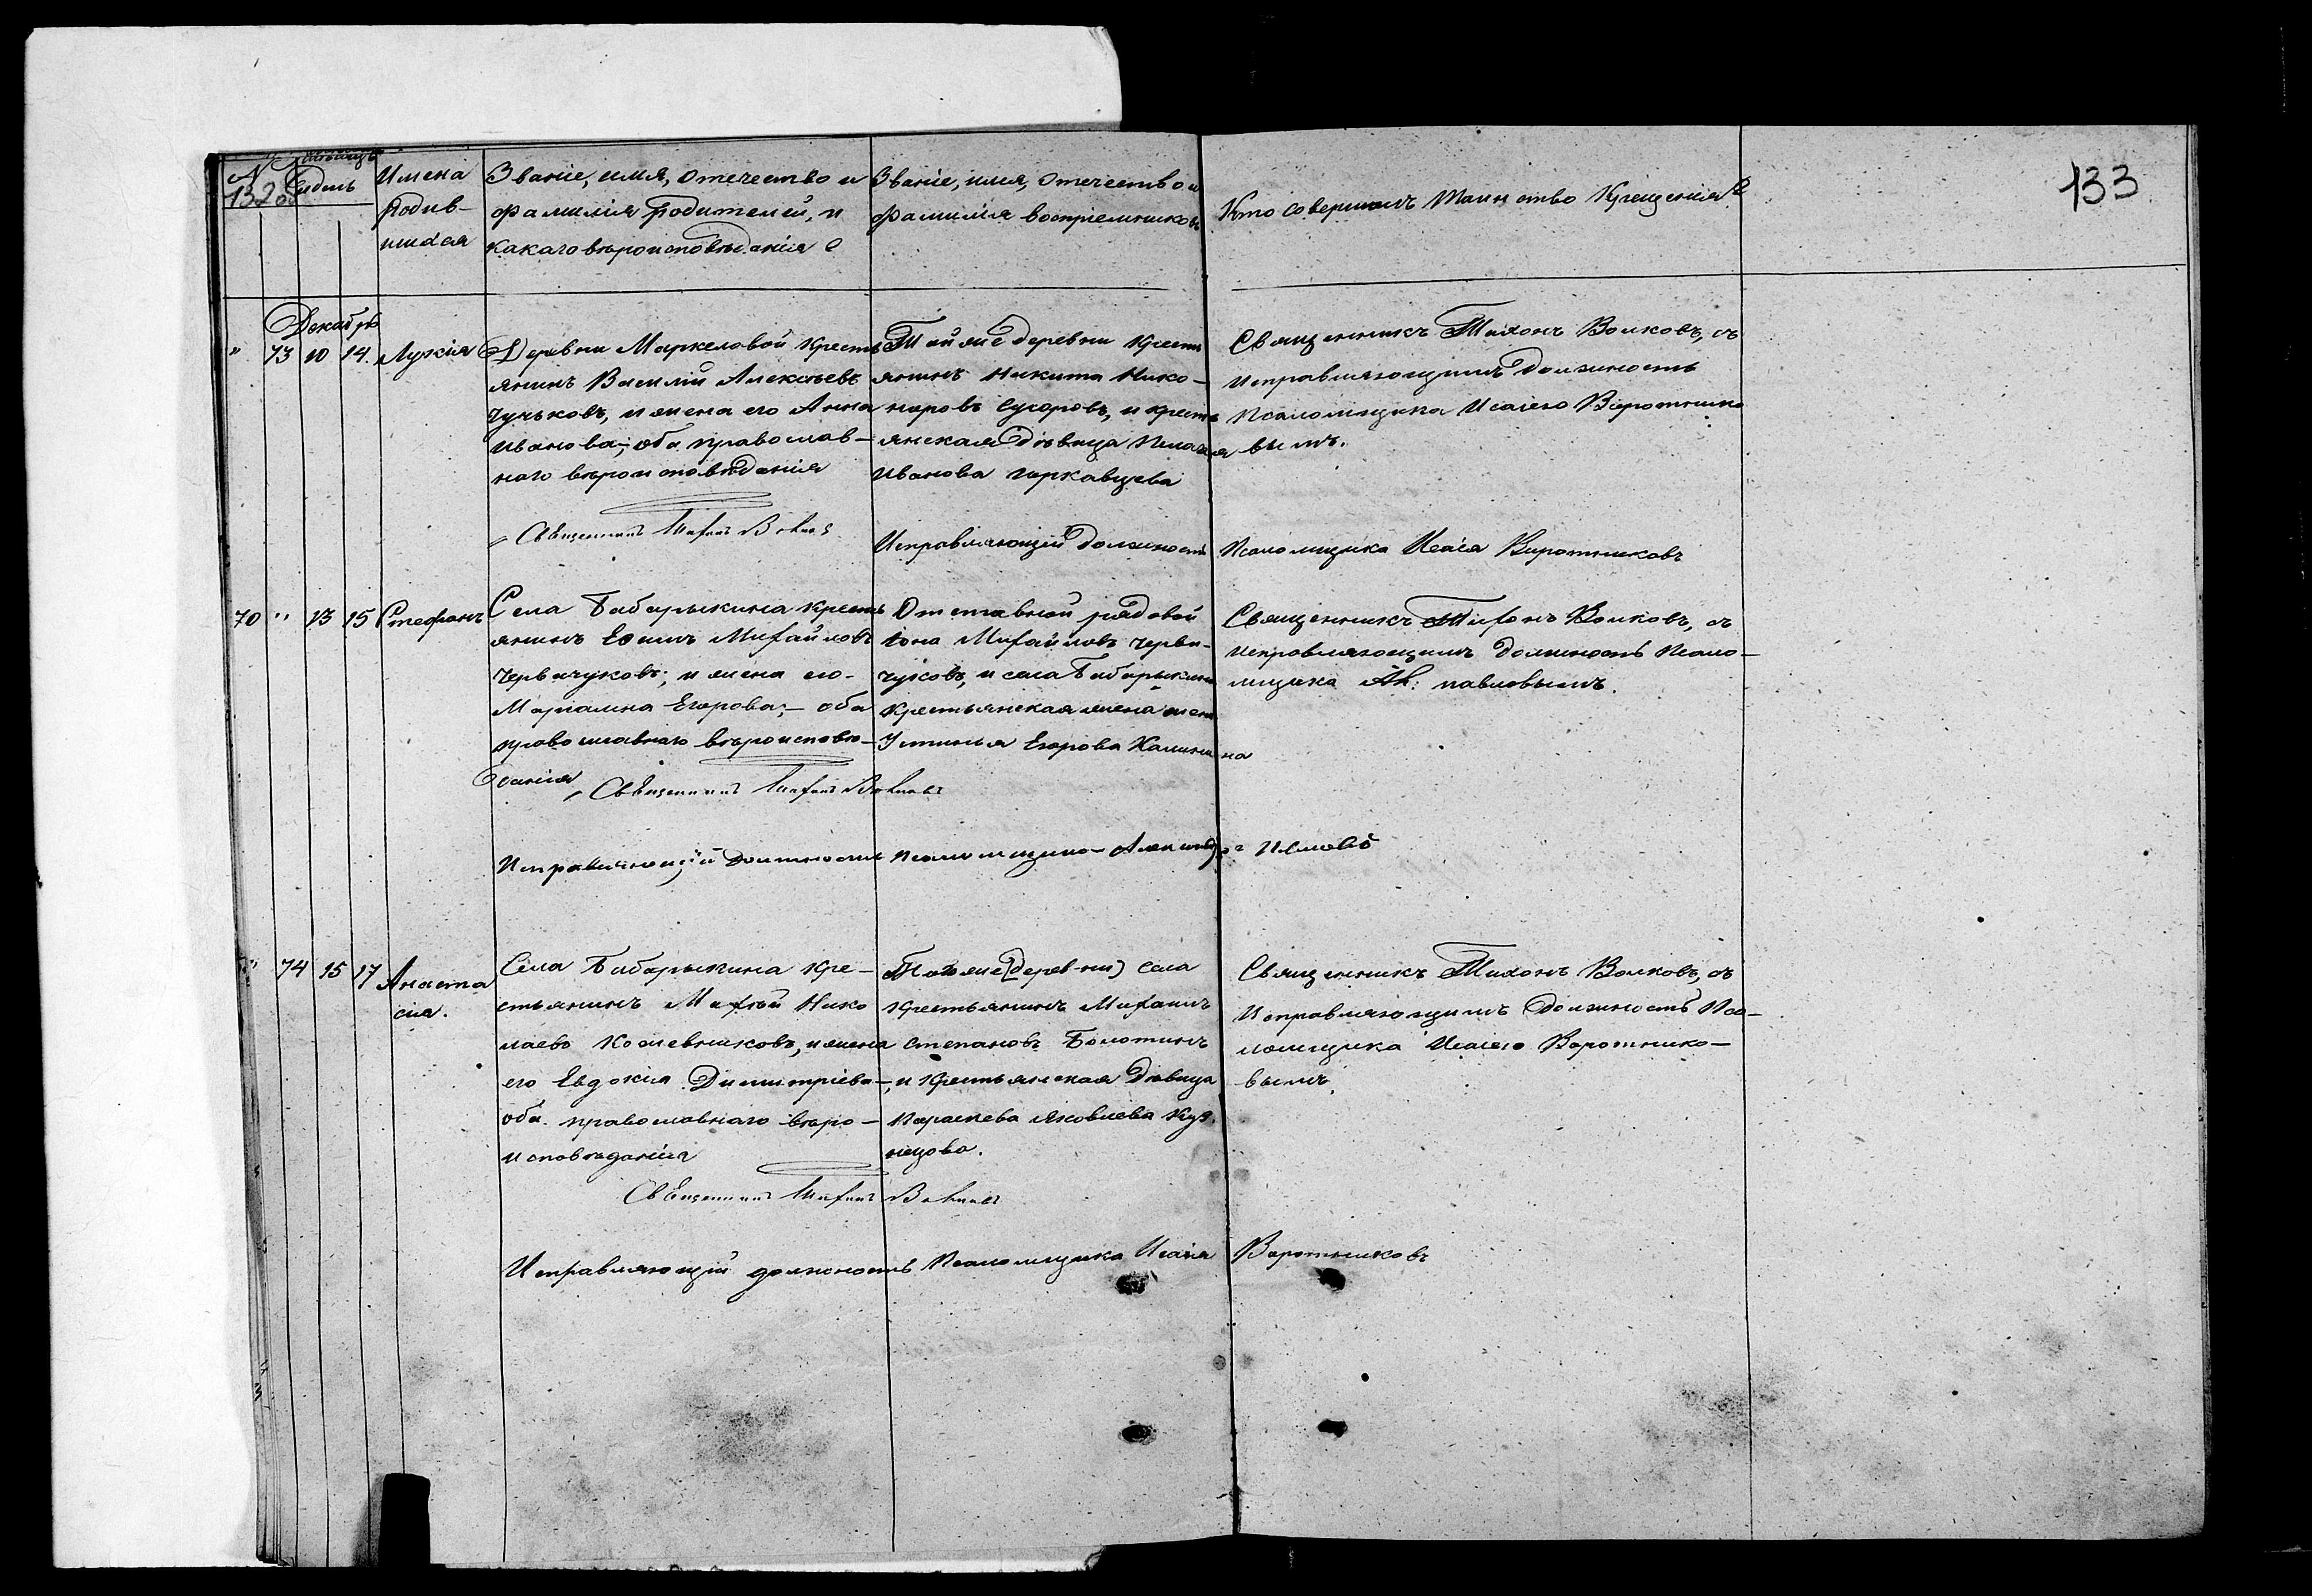 133
132об
№ Мѣсяцъ
и день
Имена
родив-
шихся
Званіе, имя, отечество и
фамилія родителей, и
какаго вѣроисповѣданія
Званіе, имя, отечество и
фамилія воспріемниковъ
Кто совершилъ таинство Крещенія
Декабрь
" 73 10 14. Лукія
Деревни Маркеловой кресть
янинъ Василій Алексѣевъ
и жена его Анна
Иванова; оба православ-
наго вѣроисповѣданія
Той же деревни кресть
янинъ Никита Нико-
норовъ Сухоровъ, и кресть
янская дѣвица Пелагія
Иванова
Священникъ Тихонъ Волковъ, съ
исправляющимъ должность
псаломщика Исаіею Воротнико
вымъ.
Священникъ Тихонъ Волковъ
Исправляющій должность Псаломщика Исаія Воротниковъ
70 " 13 15 Стефанъ
Села Бабарыкина кресть
янинъ Ефимъ Михайловъ
Червячуковъ; и жена его
Маріамна Егорова; – оба
православнаго вѣроисповѣ-
данія
Отставной рядовой
Іона Михайловъ Червя-
чуковъ, и села Бабарыкина
крестьянская жена
Устинья Егорова Калинина
Священникъ Тихонъ Волковъ, съ
исправляющимъ должность псало-
мщика Ал: Павловымъ.
Священникъ Тихонъ Волковъ
Исправляющій должность псаломщика
" 74 15 17 Анаста
сія.
Села Бабарыкина кре-
стьянинъ Матѳей Нико
лаевъ Кожевниковъ, и жена
его Евдокія Димитріева –
оба православнаго вѣро-
исповѣданія
Того же (дерев-ни) села
крестьянинъ Михаилъ
Степановъ Болотинъ
, и крестьянская дѣвица
Параскева Яковлева Куз
нецова.
Священникъ Тихонъ Волковъ, съ
исправляющимъ должность Пса-
ломщика Исаіею Воротнико-
вымъ.
Священникъ Тихонъ Волковъ
Исправляющій должность Псаломщика Исаія Воротниковъ